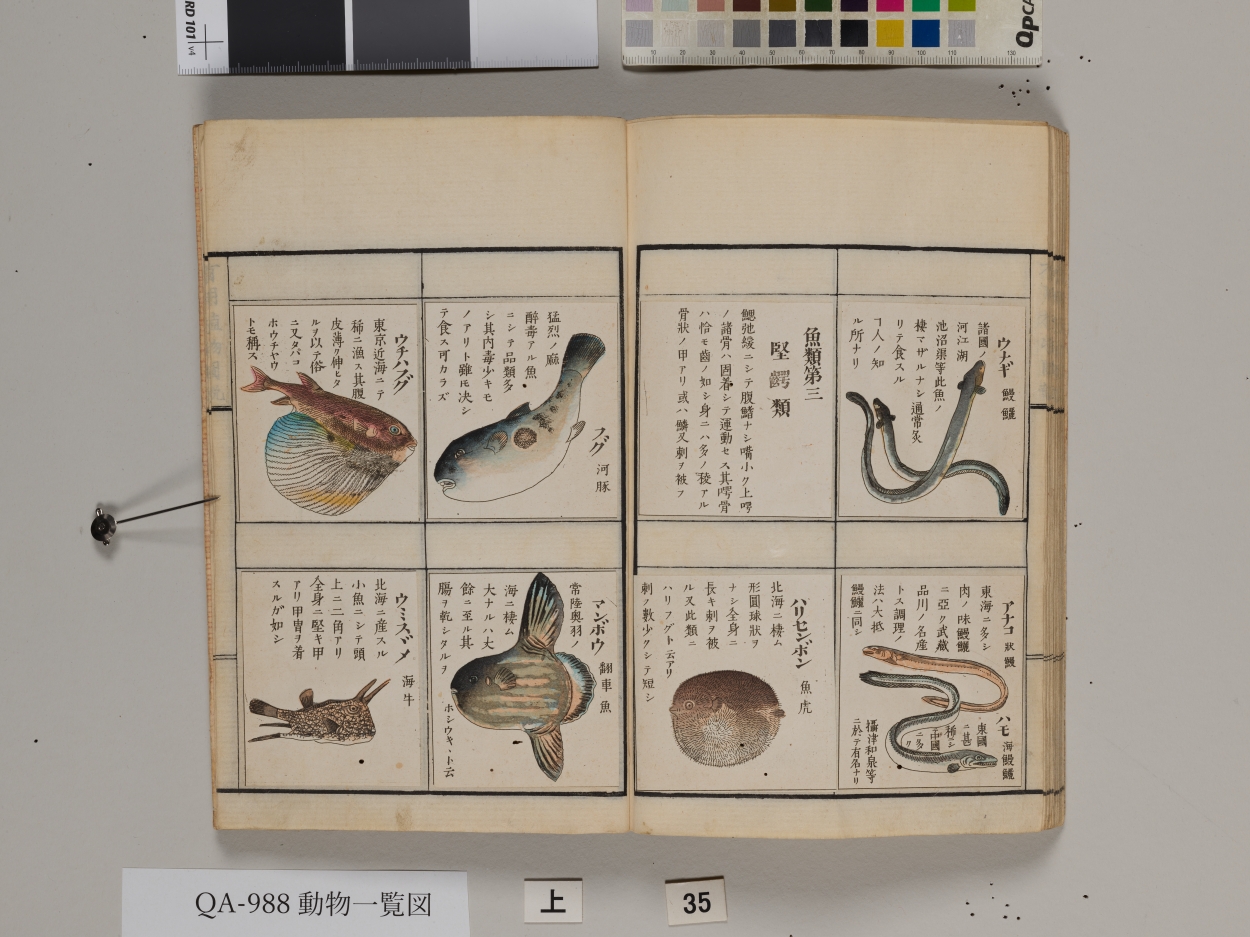 ウナギ 鰻鱺
諸國ノ
河江湖
池沼渠等此魚ノ
棲マザルナシ通常炙
リテ食スル
ヿ人ノ知
ル所ナリ
魚類第三
堅齶類
鰓弛緩ニシテ腹鰭ナシ嘴小ク上腭
ノ諸骨ハ固着シテ運動セス其腭骨
ハ恰モ齒ノ如シ身ニハ多ノ稜アル
骨狀ノ甲アリ或ハ鱗又刺ヲ被フ
アナコ 狀鰻
東海ニ多シ
肉ノ味鰻鱺
ニ亞ク武藏
品川ノ名産
トス調理ノ
法ハ大抵
鰻鱺ニ同シ
ハモ 海鰻鱺
東國
ニ甚
稀ニシ
中國
ニ多
ク
攝津和泉等
ニ於テ有名ナリ
ハリセンボン 魚虎
北海ニ棲ム
形圓球狀ヲ
ナシ全身ニ
長キ刺ヲ被
ル又此類ニ
ハリフグト云アリ
刺ノ數少クシテ短シ
フグ 河豚
猛烈ノ麻
醉毒アル魚
ニシテ品類多
シ其内毒少キモ
ノアリト雖𪜈決シ
テ食ス可カラズ
ウチハフグ
東京近海ニテ
稀ニ漁ス其腹
皮薄ク伸ヒタ
ルヲ以テ俗
ニ又タバコ
ホウチヤウ
トモ稱ス
マンボウ 翻車魚
常陸奧羽ノ
海ニ棲ム
大ナルハ丈
餘ニ至ル其
腸ヲ乾シタルヲ
ホシウキヽト云
ウミスヾメ 海牛
北海ニ産スル
小魚ニシテ頭
上ニ二角アリ
全身ニ堅キ甲
アリ甲冑ヲ着
スルガ如シ
QA-988 動物一覧図
上
35
QPCA
101
v4
10 20 30 40 50 60 70 80 90 100 110 130